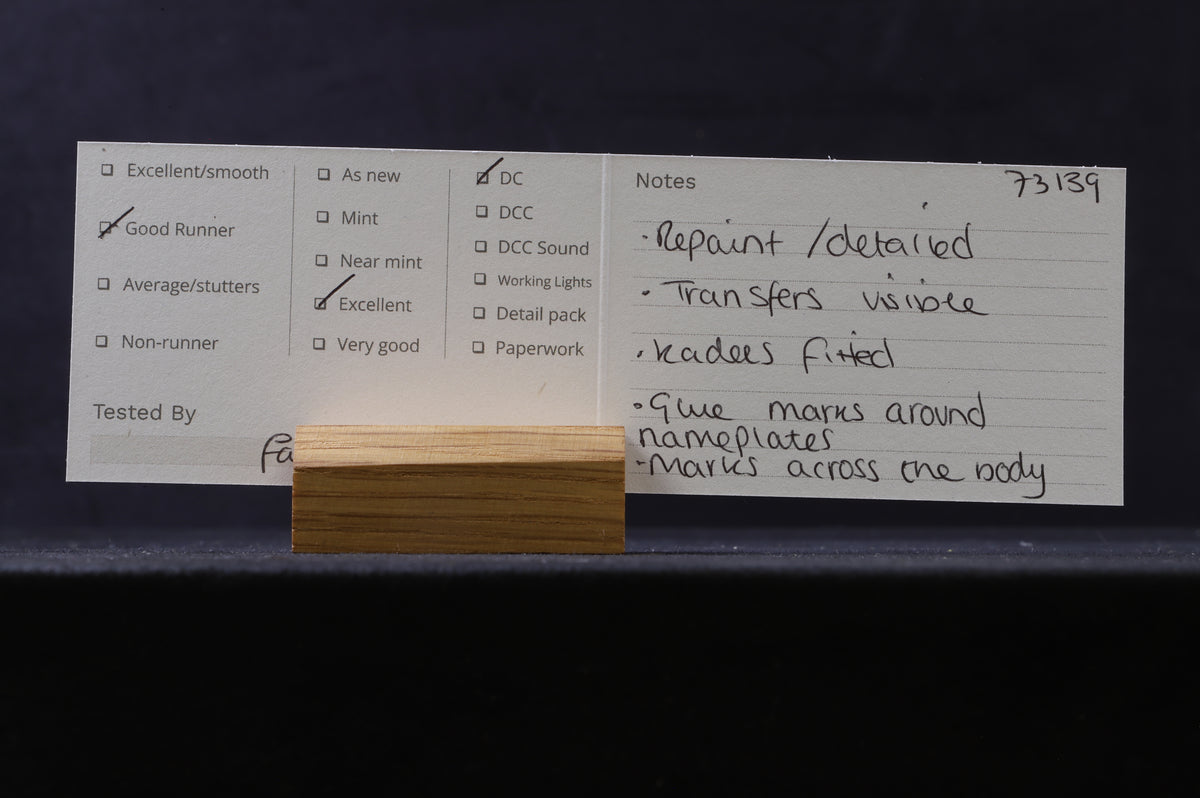 Excellent/smooth
Good Runner
Average/stutters
Non-runner
Tested By
As new
Mint
Near mint
Excellent
Very good
DC
DCC
DCC Sound
Working Lights
Detail pack
Paperwork
Notes
73139
· Repaint / detailed
· Transfers visible
· Kadees fitted
· Glue marks around
nameplates
- Marks across the body